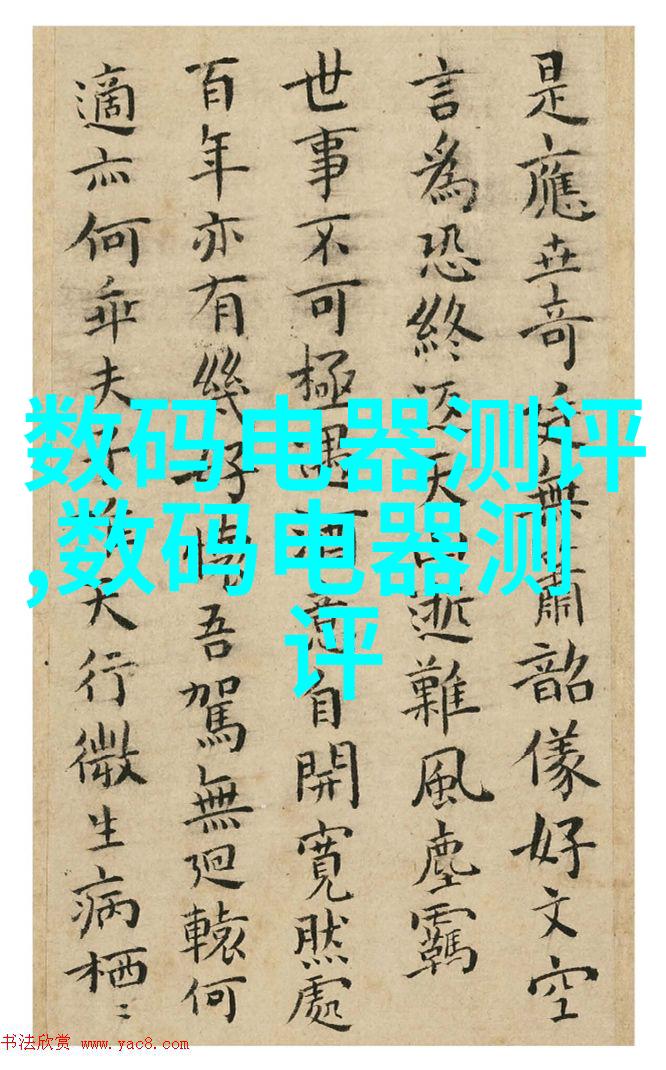 数码电器测评
,数码电器测
评
是應世奇無韶儀好文空
言為恐終天逃難風塵羈
世事不可極遇酒意自開寬然處
百年亦有幾好吾駕無迴轅何
適亦何乖夫大行微生病栖〻
书法欣赏 www.yac8.com